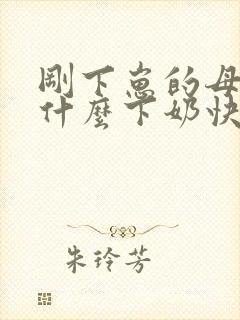 剛下崽的母
什麼下奶快
朱玲芳